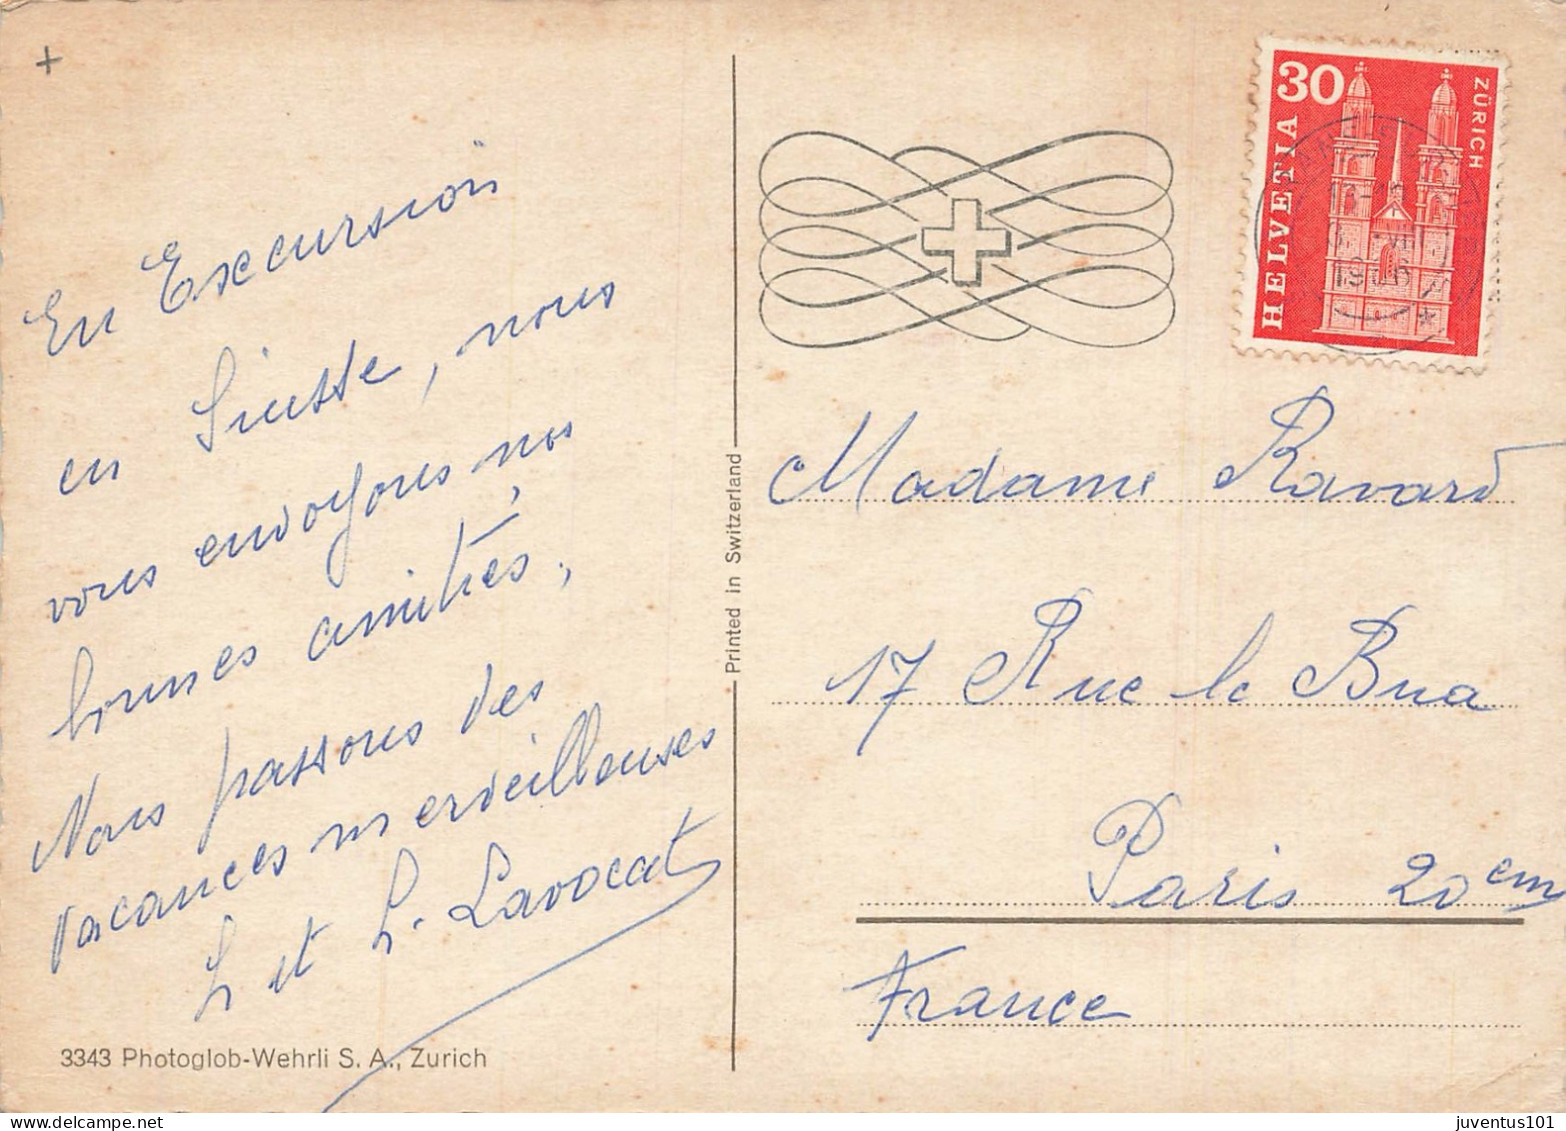 En Excursion
en Suisse, nous
vous envoyons nos
bonnes amitiés,
Nous passons des
vacances merveilleuses
L et L. Lavocat
3343 Photoglob-Wehrli S. A., Zurich
Printed in Switzerland
30
HELVETIA
ZÜRICH
Madame Ravard
17 Rue le Bua
Paris 20em
France
juventus101